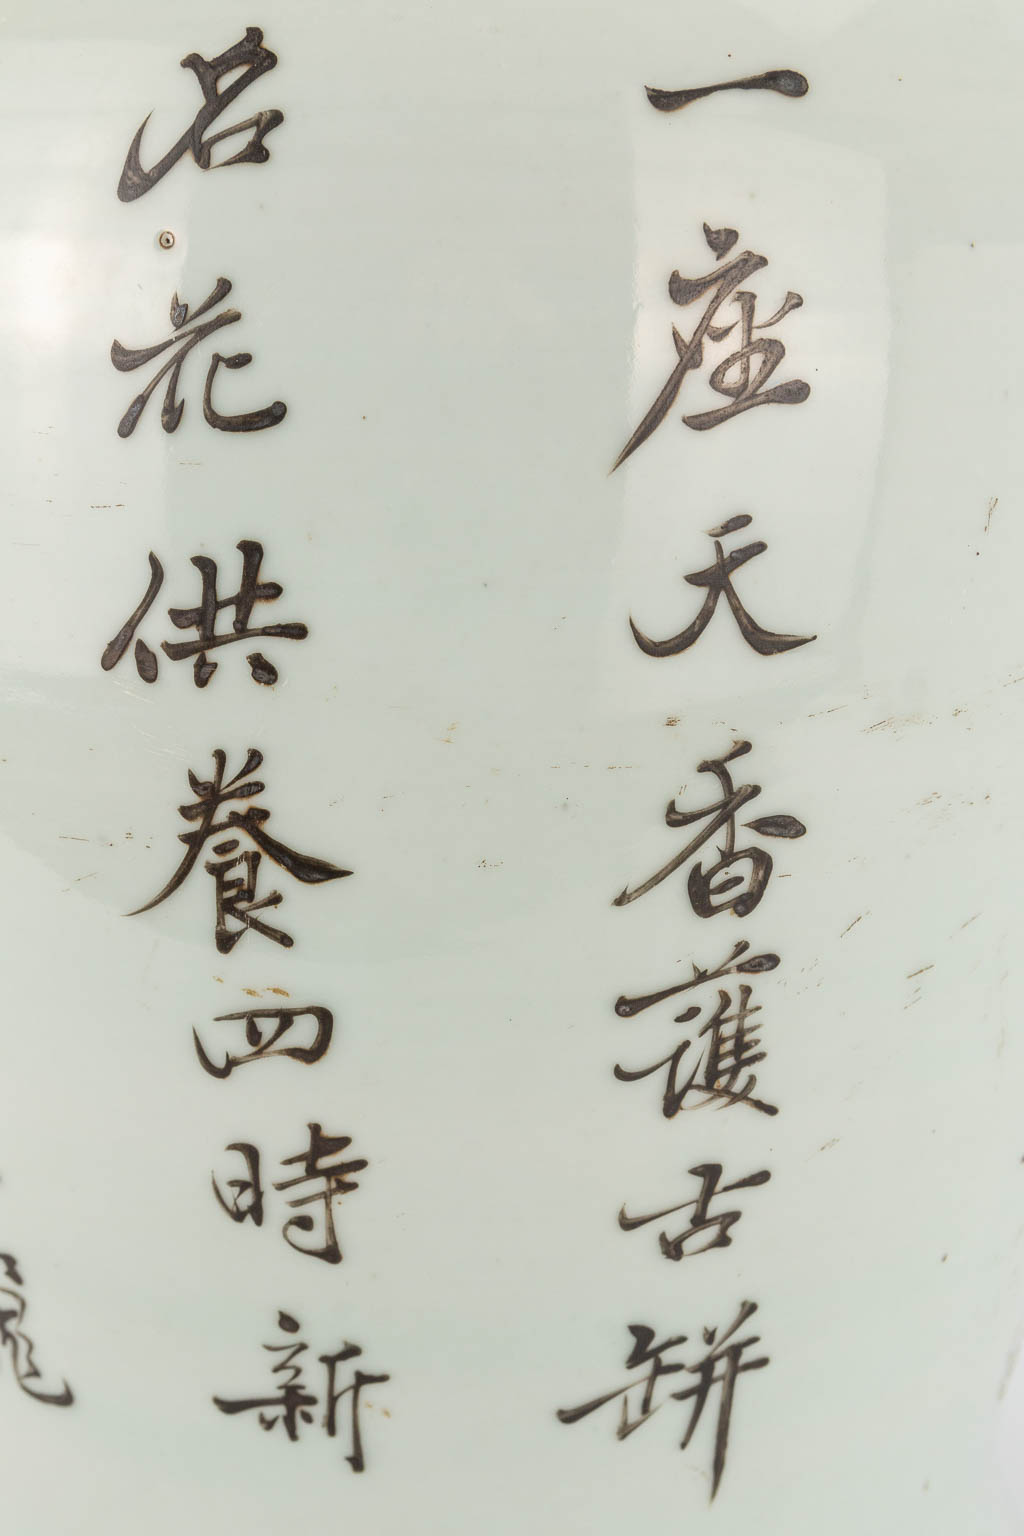 一座天香護古缾
名花供養四時新